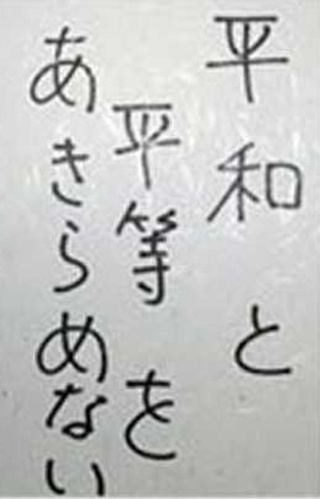 平和と
平等を
あきらめない